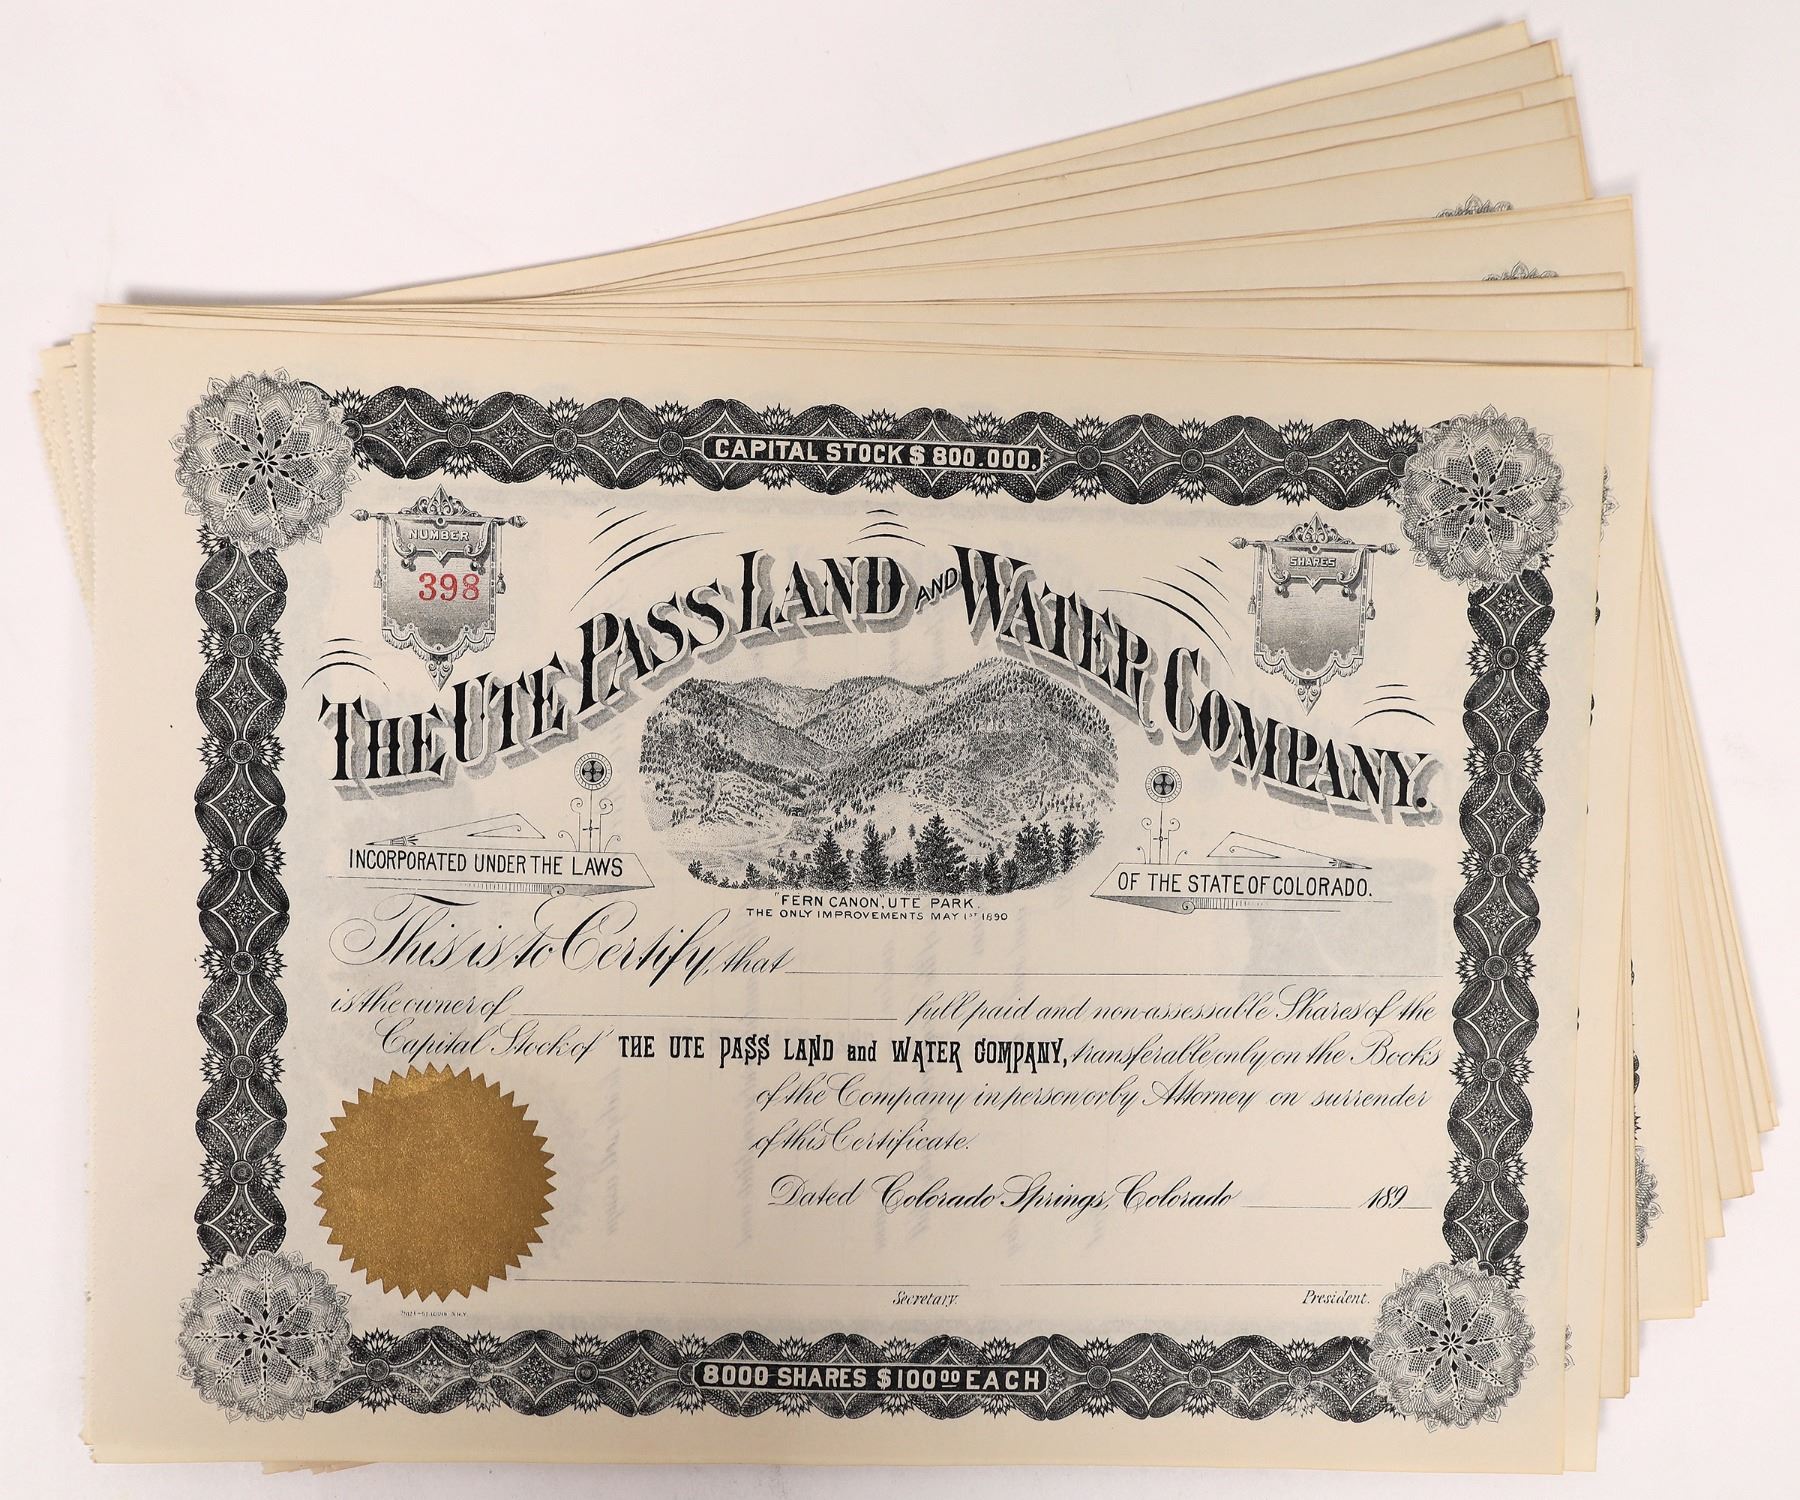 CAPITAL STOCK $ 800.000.
NUMBER
398
SHARES
THE UTE PASS LAND AND WATER COMPANY.
INCORPORATED UNDER THE LAWS
OF THE STATE OF COLORADO.
"FERN CANON", UTE PARK.
THE ONLY IMPROVEMENTS MAY 1ST 1890
This is to Certify, that
is the owner of full paid and non-assessable Shares of the
Capital Stock of THE UTE PASS LAND and WATER COMPANY, transferable only on the Books
of the Company in person or by Attorney on surrender
of this Certificate.
Dated Colorado Springs, Colorado 189
Secretary.
President.
8000 SHARES $100.00 EACH